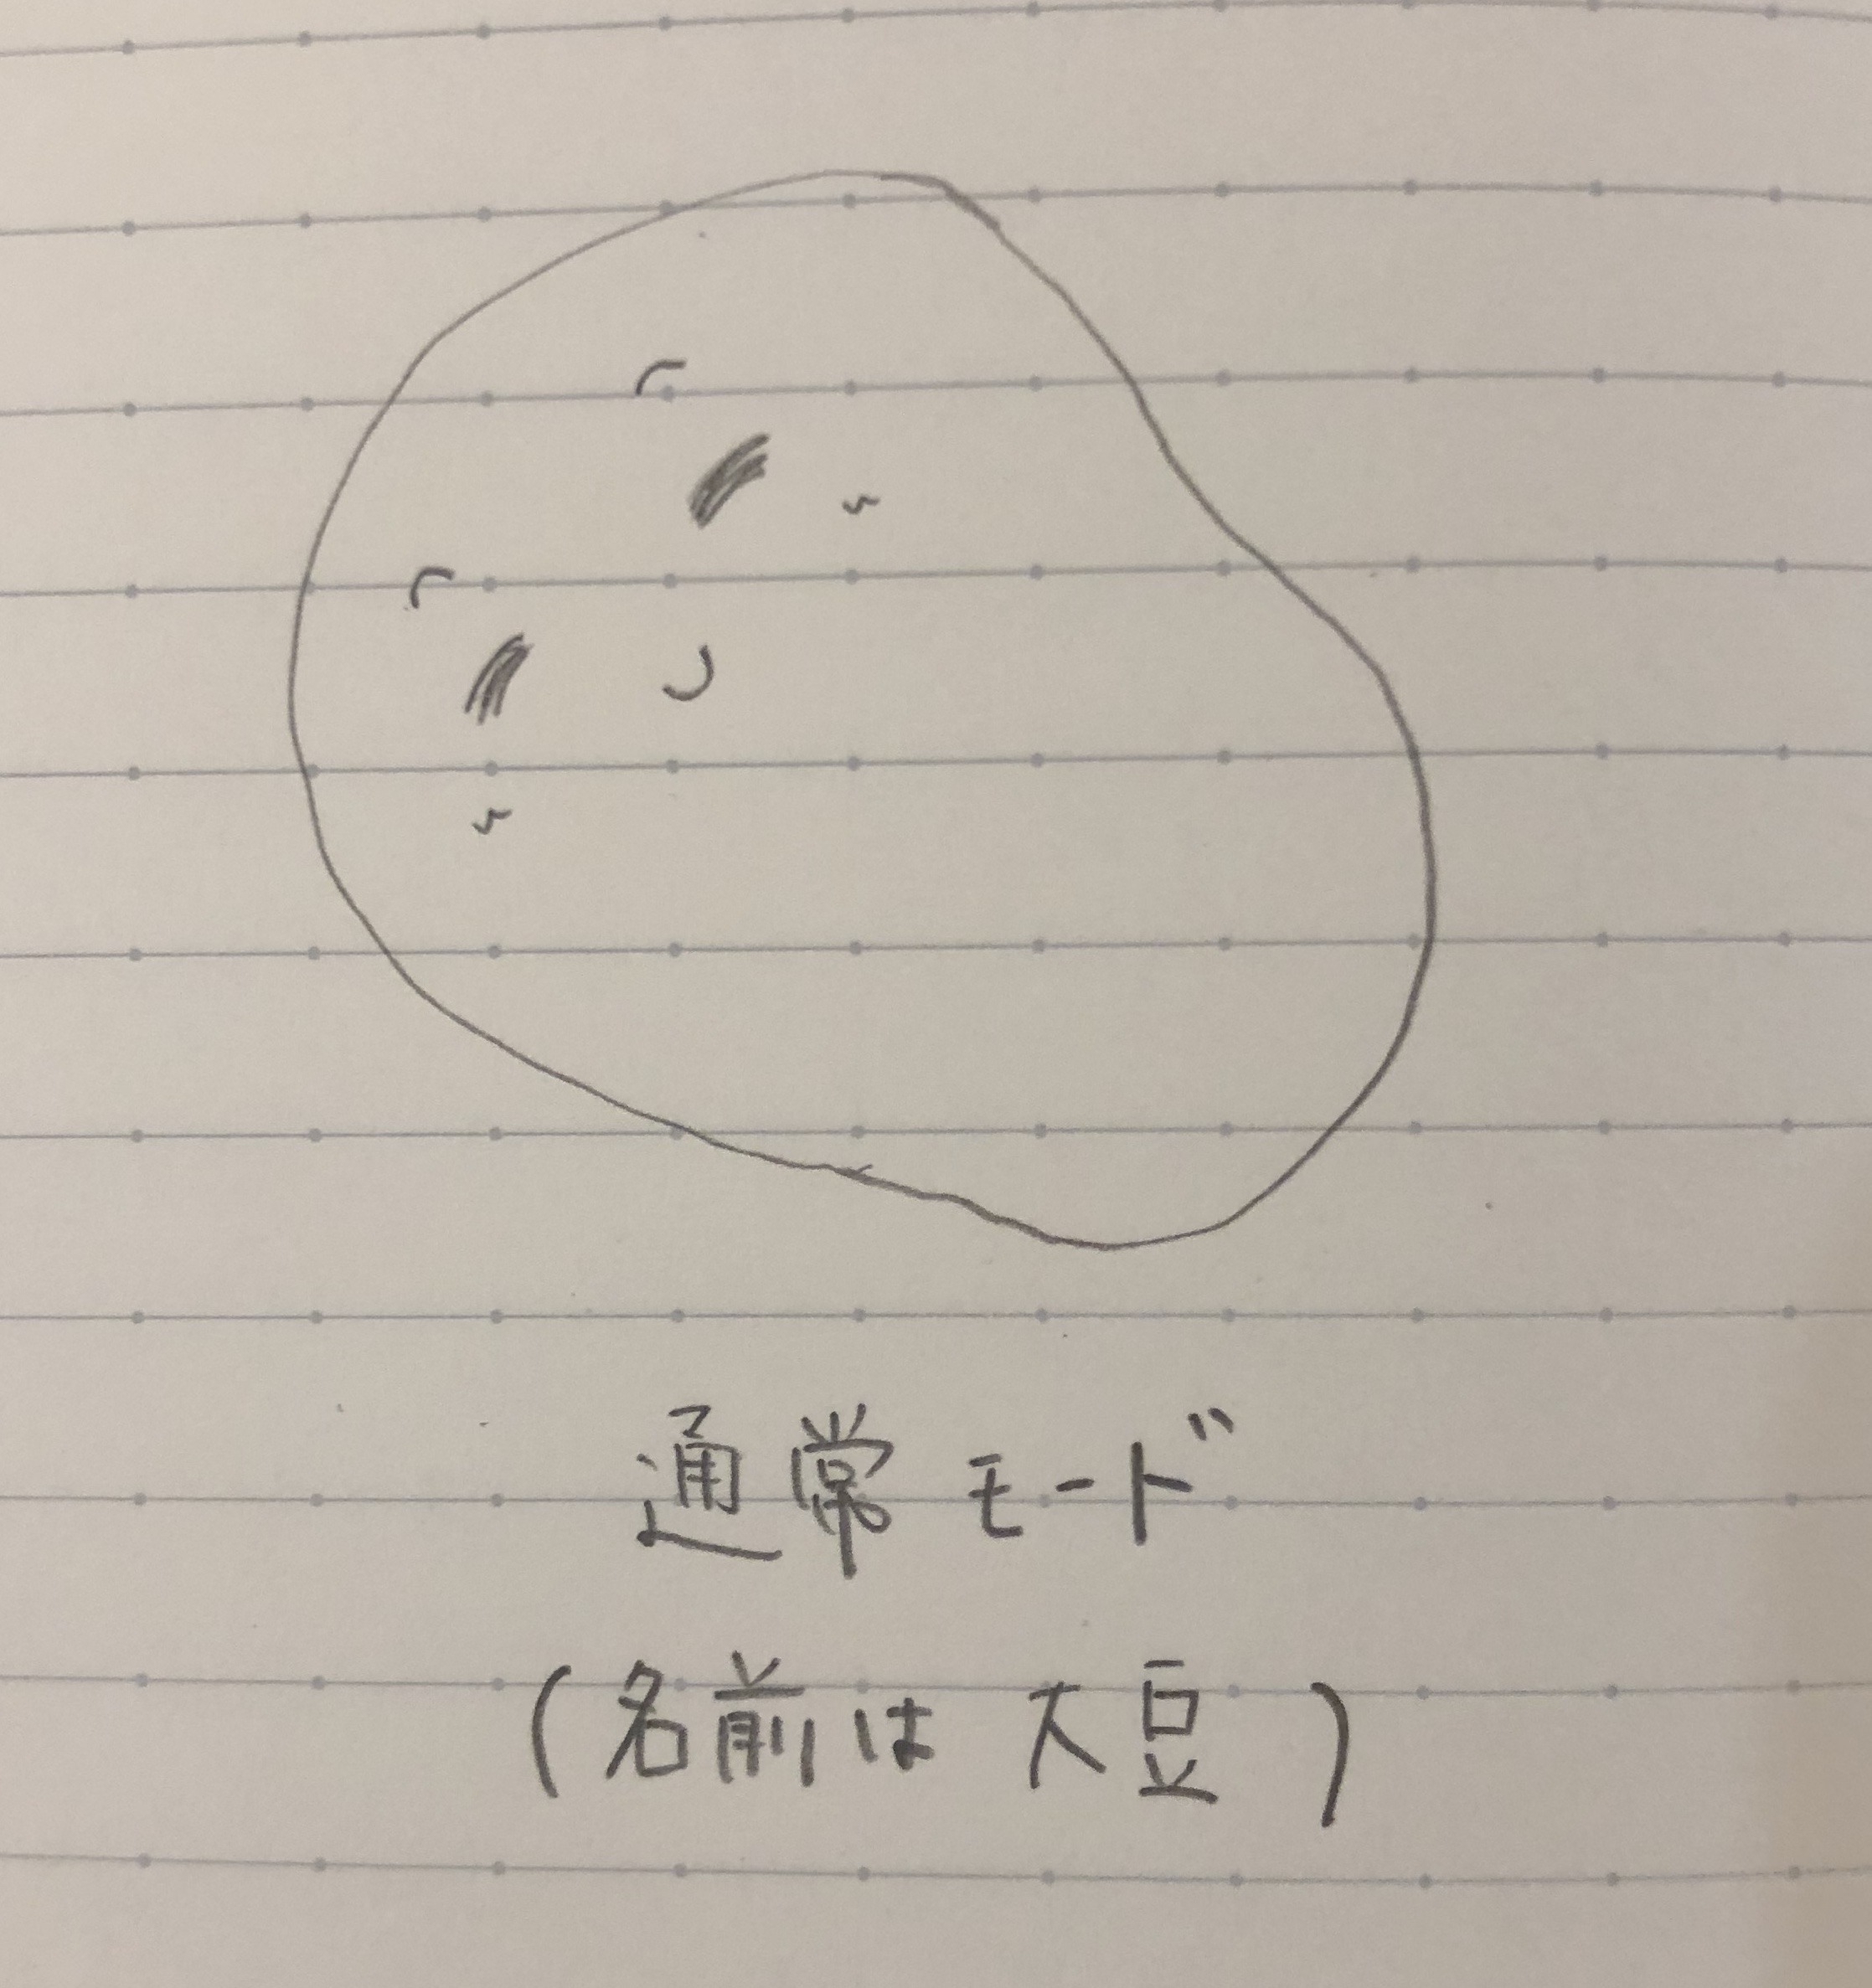 通常モード
(名前は大豆)